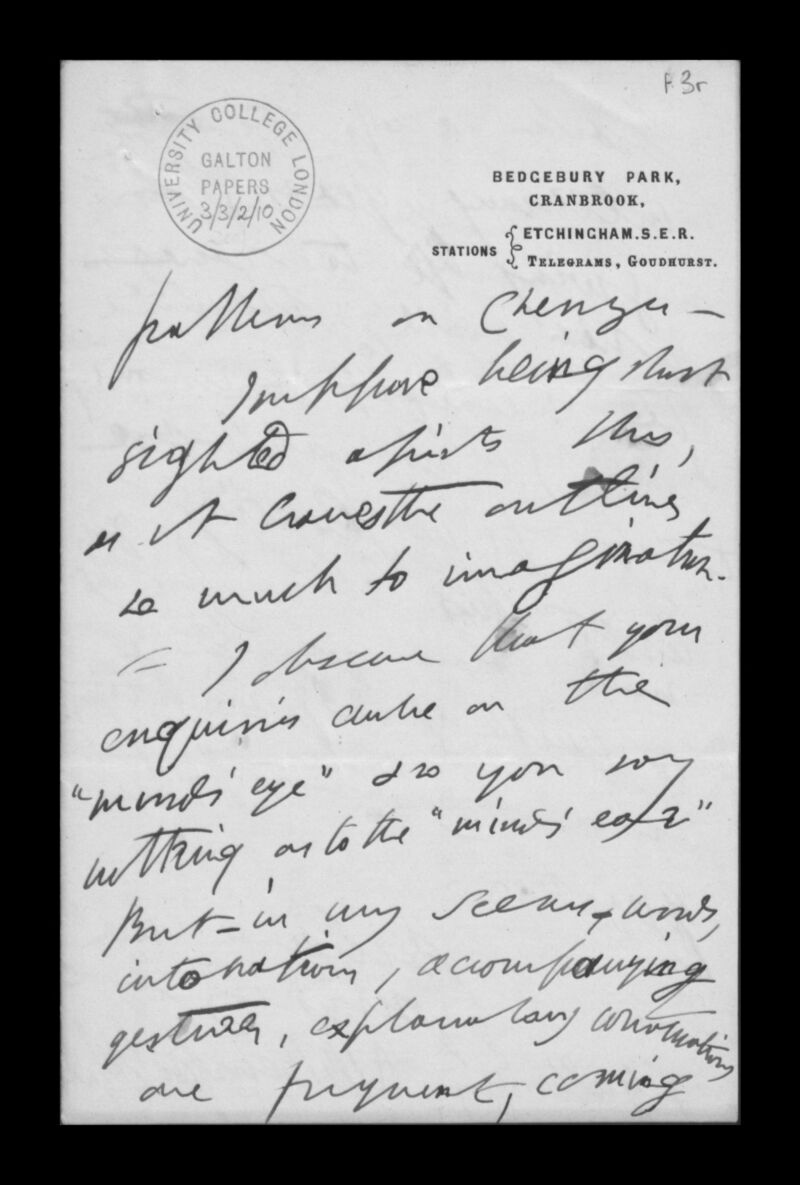 f. 3r
UNIVERSITY COLLEGE LONDON
GALTON
PAPERS
3/3/2/10
BEDGEBURY PARK,
CRANBROOK,
STATIONS
ETCHINGHAM. S.E.R.
TELEGRAMS, GOUDHURST.
patterns on
I suppose being short
sighted assists this,
as it leaves the outlines
so much to imagination.
= I observe that your
enquiries are on the
"mind's eye" & so you say
nothing as to the "mind's ear"
But - in my words,
intonations, accompanying
gestures, explanatory
are frequent, coming